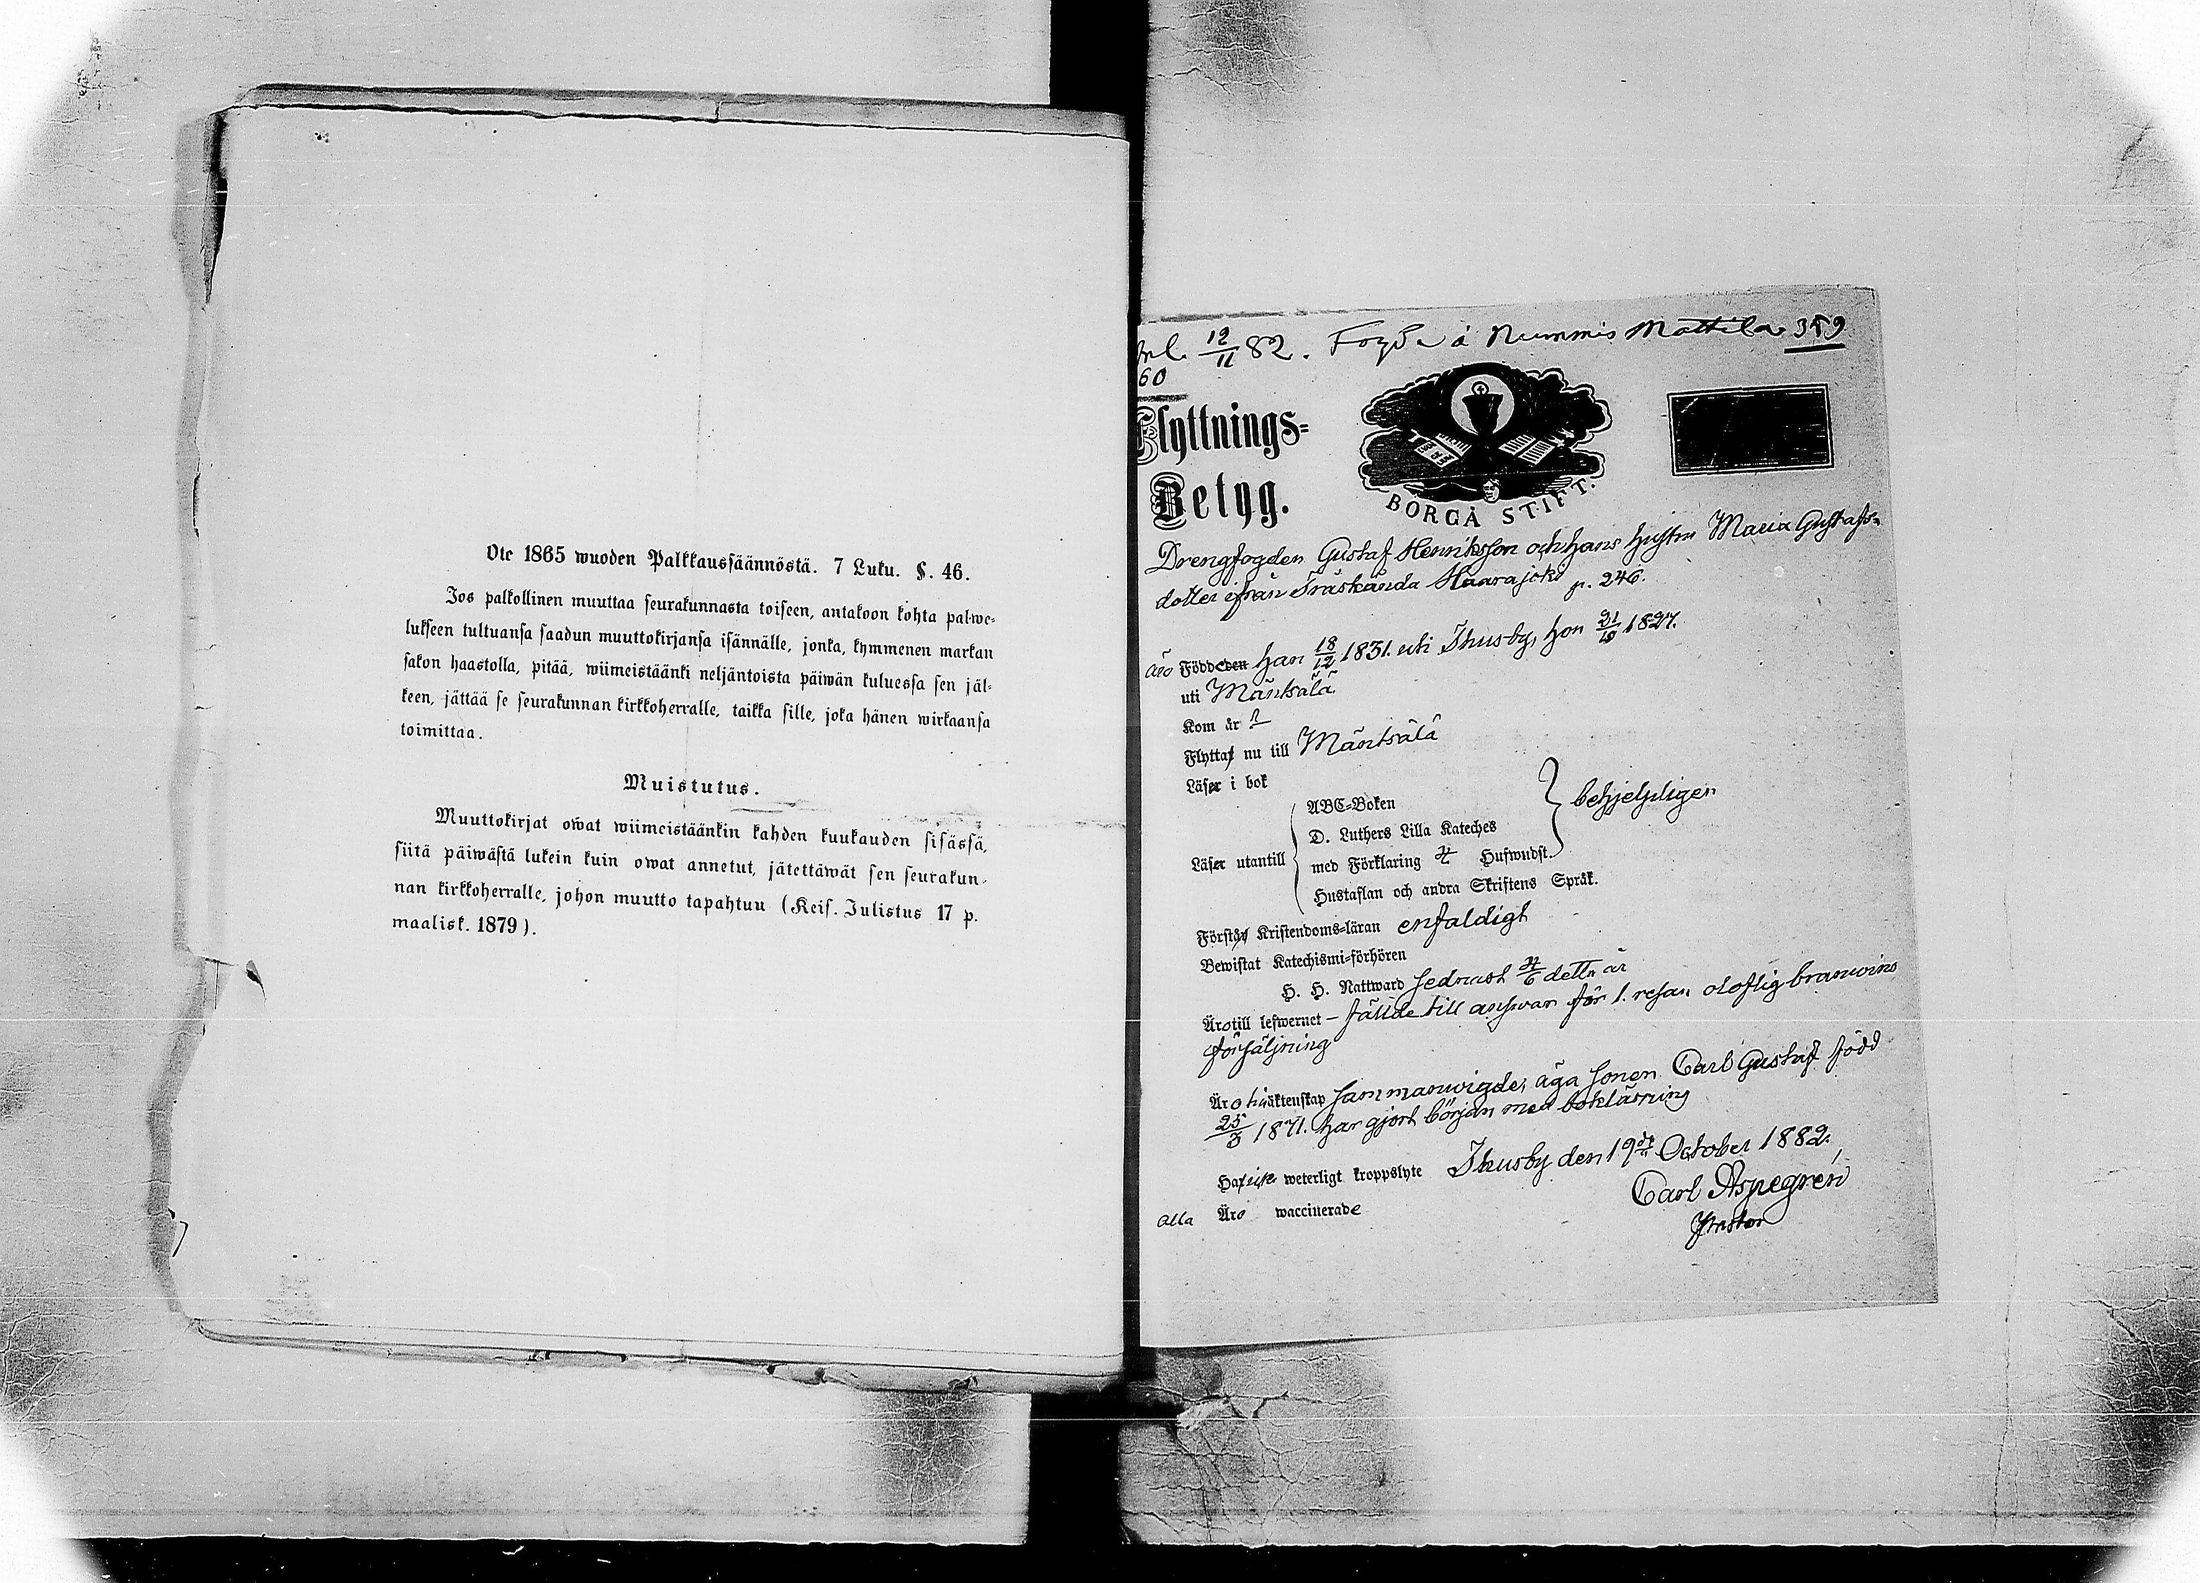 Ote 1865 wuoden Palkkaussäännöstä. 7 Luku. §. 46.
Jos palkollinen muuttaa seurakunnasta toiseen, antakoon kohta palwe-
lukseen tultuansa saadun muuttokirjansa isännälle, jonka, kymmenen markan
sakon haastolla, pitää, wiimeistäänki neljäntoista päiwän kuluessa sen jäl-
keen, jättää se seurakunnan kirkkoherralle, taikka sille, joka hänen wirkaansa
toimittaa.
Muistutus.
Muuttokirjat owat wiimeistäänkin kahden kuukauden sisässä,
siitä päiwästä lukein kuin owat annetut, jätettäwät sen seurakun-
nan kirkkoherralle, johon muutto tapahtuu (Keis. Julistus 17 p.
maalisk. 1879).
Inl. 12/11 82. à Nummis Mattila 359
60
Flyttnings-
Betyg.
BORGÅ STIFT.
Drengfogden Gustaf Henriksson och hans hustru Maria Gustafs-
dotter ifrån Träskända Haarajoki p. 246.
äro Födde han 18/12 1831. uti Thusby, hon 21/10 1827.
uti Mäntsälä
Kom år ?
Flytta nu till Mäntsälä
Läser i bok
ABC-Boken
behjelpligen
D. Luthers Lilla Kateches
Läser utantill
med Förklaring Hufwudst.
Hustaflan och andra Skriftens Språk.
Förstå Kristendoms-läran enfaldigt
Bewistat Katechismi-förhören
H. H. Nattward sednast detta år
Äro till lefwernet – fällde till answar för 1. resan oloflig bränwins
försäljning
Äro i äktenskap sammanwigde, äga sonen Carl Gustaf född
25/3 1871. har gjort början med bokläsning
Ha icke weterligt kroppslyte Thusby den 19de October 1882,
Carl Aspegren
Pastor
Alla Äro waccinerade